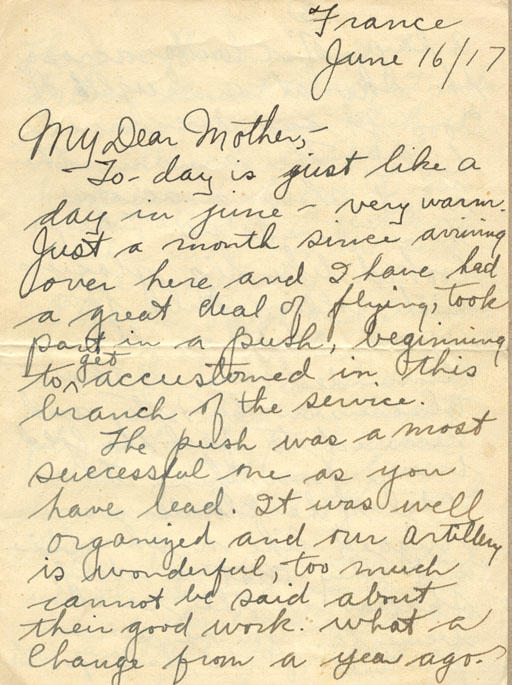 France
June 16/17
My Dear Mother,-
To-day is just like a
day in june - very warm.
Just a month since arriving
over here and I have had
a great deal of flying, took
part in a push, beginning
to get accustomed in this
branch of the service.
The push was a most
successful one as you
have read. It was well
organized and our artillery
is wonderful, too much
cannot be said about
their good work. what a
change from a year ago.